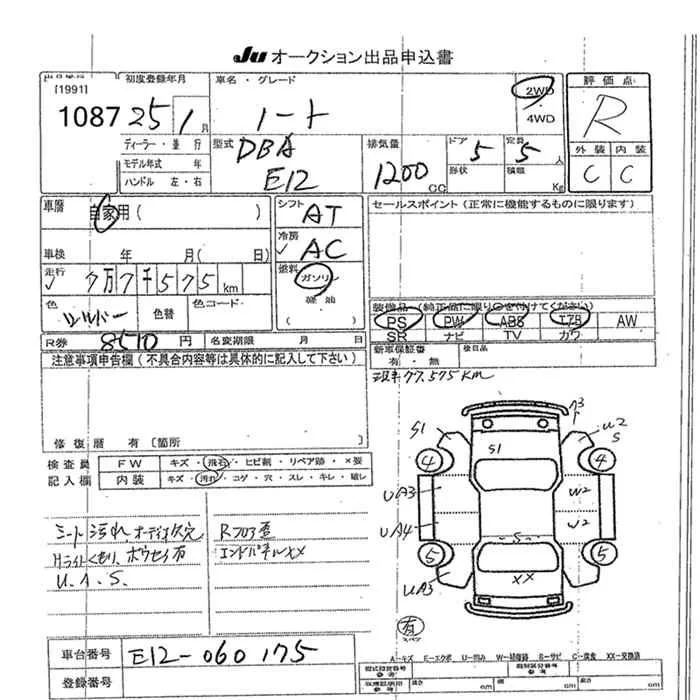 Ju オークション出品申込書
出品番号 初度登録年月 車名・グレード 2WD 評価点
[1991]
1087 25 1月 ノート 4WD R
ディーラー・並行 型式 DBA 排気量 ドア 5 定員 5人 外装 内装
モデル年式 年 E12 1200CC 形状 積載 Kg C C
ハンドル 左・右
車歴 自家用( ) シフト AT セールスポイント(正常に機能するものに限ります)
冷房 AC
車検 年 月( 日)
走行 7万7千575km 燃料 ガソリン
軽油
( )
色 シルバー 色替 色コード 装備品(純正品に限り○を付けてください)
PS PW ABS エアB AW
SR ナビ TV カワ
R券 8510円 名変期限 月 日 新車保証書 後日品
有・無
注意事項申告欄(不具合内容等は具体的に記入して下さい)
現車77,575KM
修復歴 有[箇所
検査員 FW キズ・飛石・ヒビ割・リペア跡・X要
記入欄 内装 キズ・汚れ・コゲ・穴・スレ・キレ・破レ
シート汚れ、オーディオ欠 Rフロア歪
Hライトくもり、ボウセイ有 エンドパネルXX
U.A.S.
A3
S1 U2
S
S1
4 4
UA3 W2
UA4 W2
S
5 5
UA3 XX
有
スペア
A－キズ E－エクボ U－凹ミ W－補修跡 S－サビ C－腐食 XX－交換済
車台番号 E12-060175
登録番号
cm cm cm